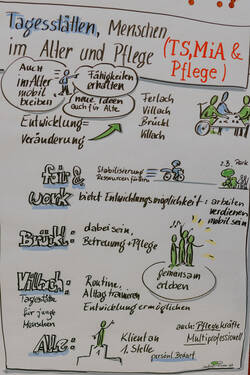 Tagesstätten, Menschen
im Alter und Pflege
(TS, MiA &
Pflege)
Auch
im Alter
mobil
bleiben
Fähigkeiten
erhalten
neue Ideen
auch für Alte
Ferlach
Villach
Brückl
Villach
Entwicklung=
Veränderung
für &
work
Stabilisierung
Ressourcen fördern
z.B. Park
bietet Entwicklungsmöglichkeit:
arbeiten
verdienen
mobil sein
Brückl:
dabei sein,
Betreuung + Pflege
gemeinsam
erleben
Villach:
Tagesstätte
für junge
Menschen
Routine,
Alltag trainieren
Entwicklung ermöglichen
Alle:
Klient an
1. Stelle
persönl. Bedarf
auch: Pflegekräfte
Multiprofessionell